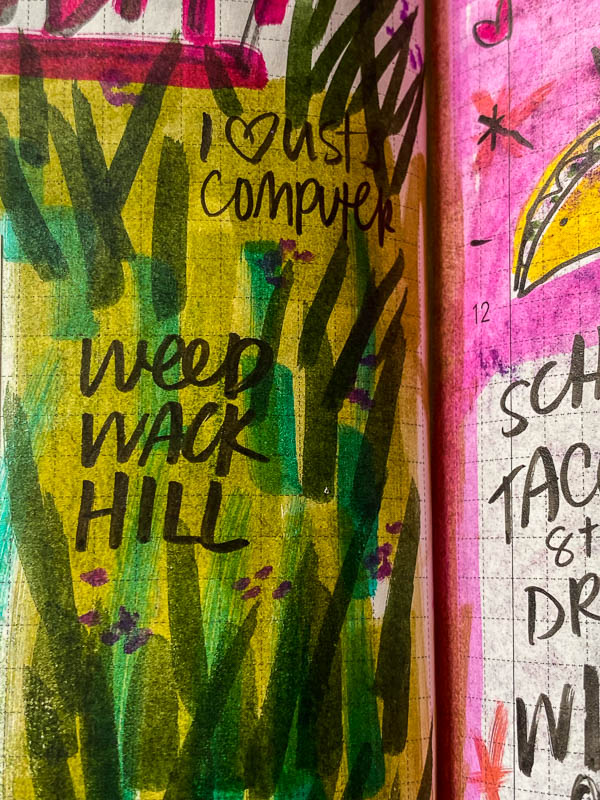 I ♡ lists
computer
WeeD
WACK
HILL
12
SCH
TAC
&
DR